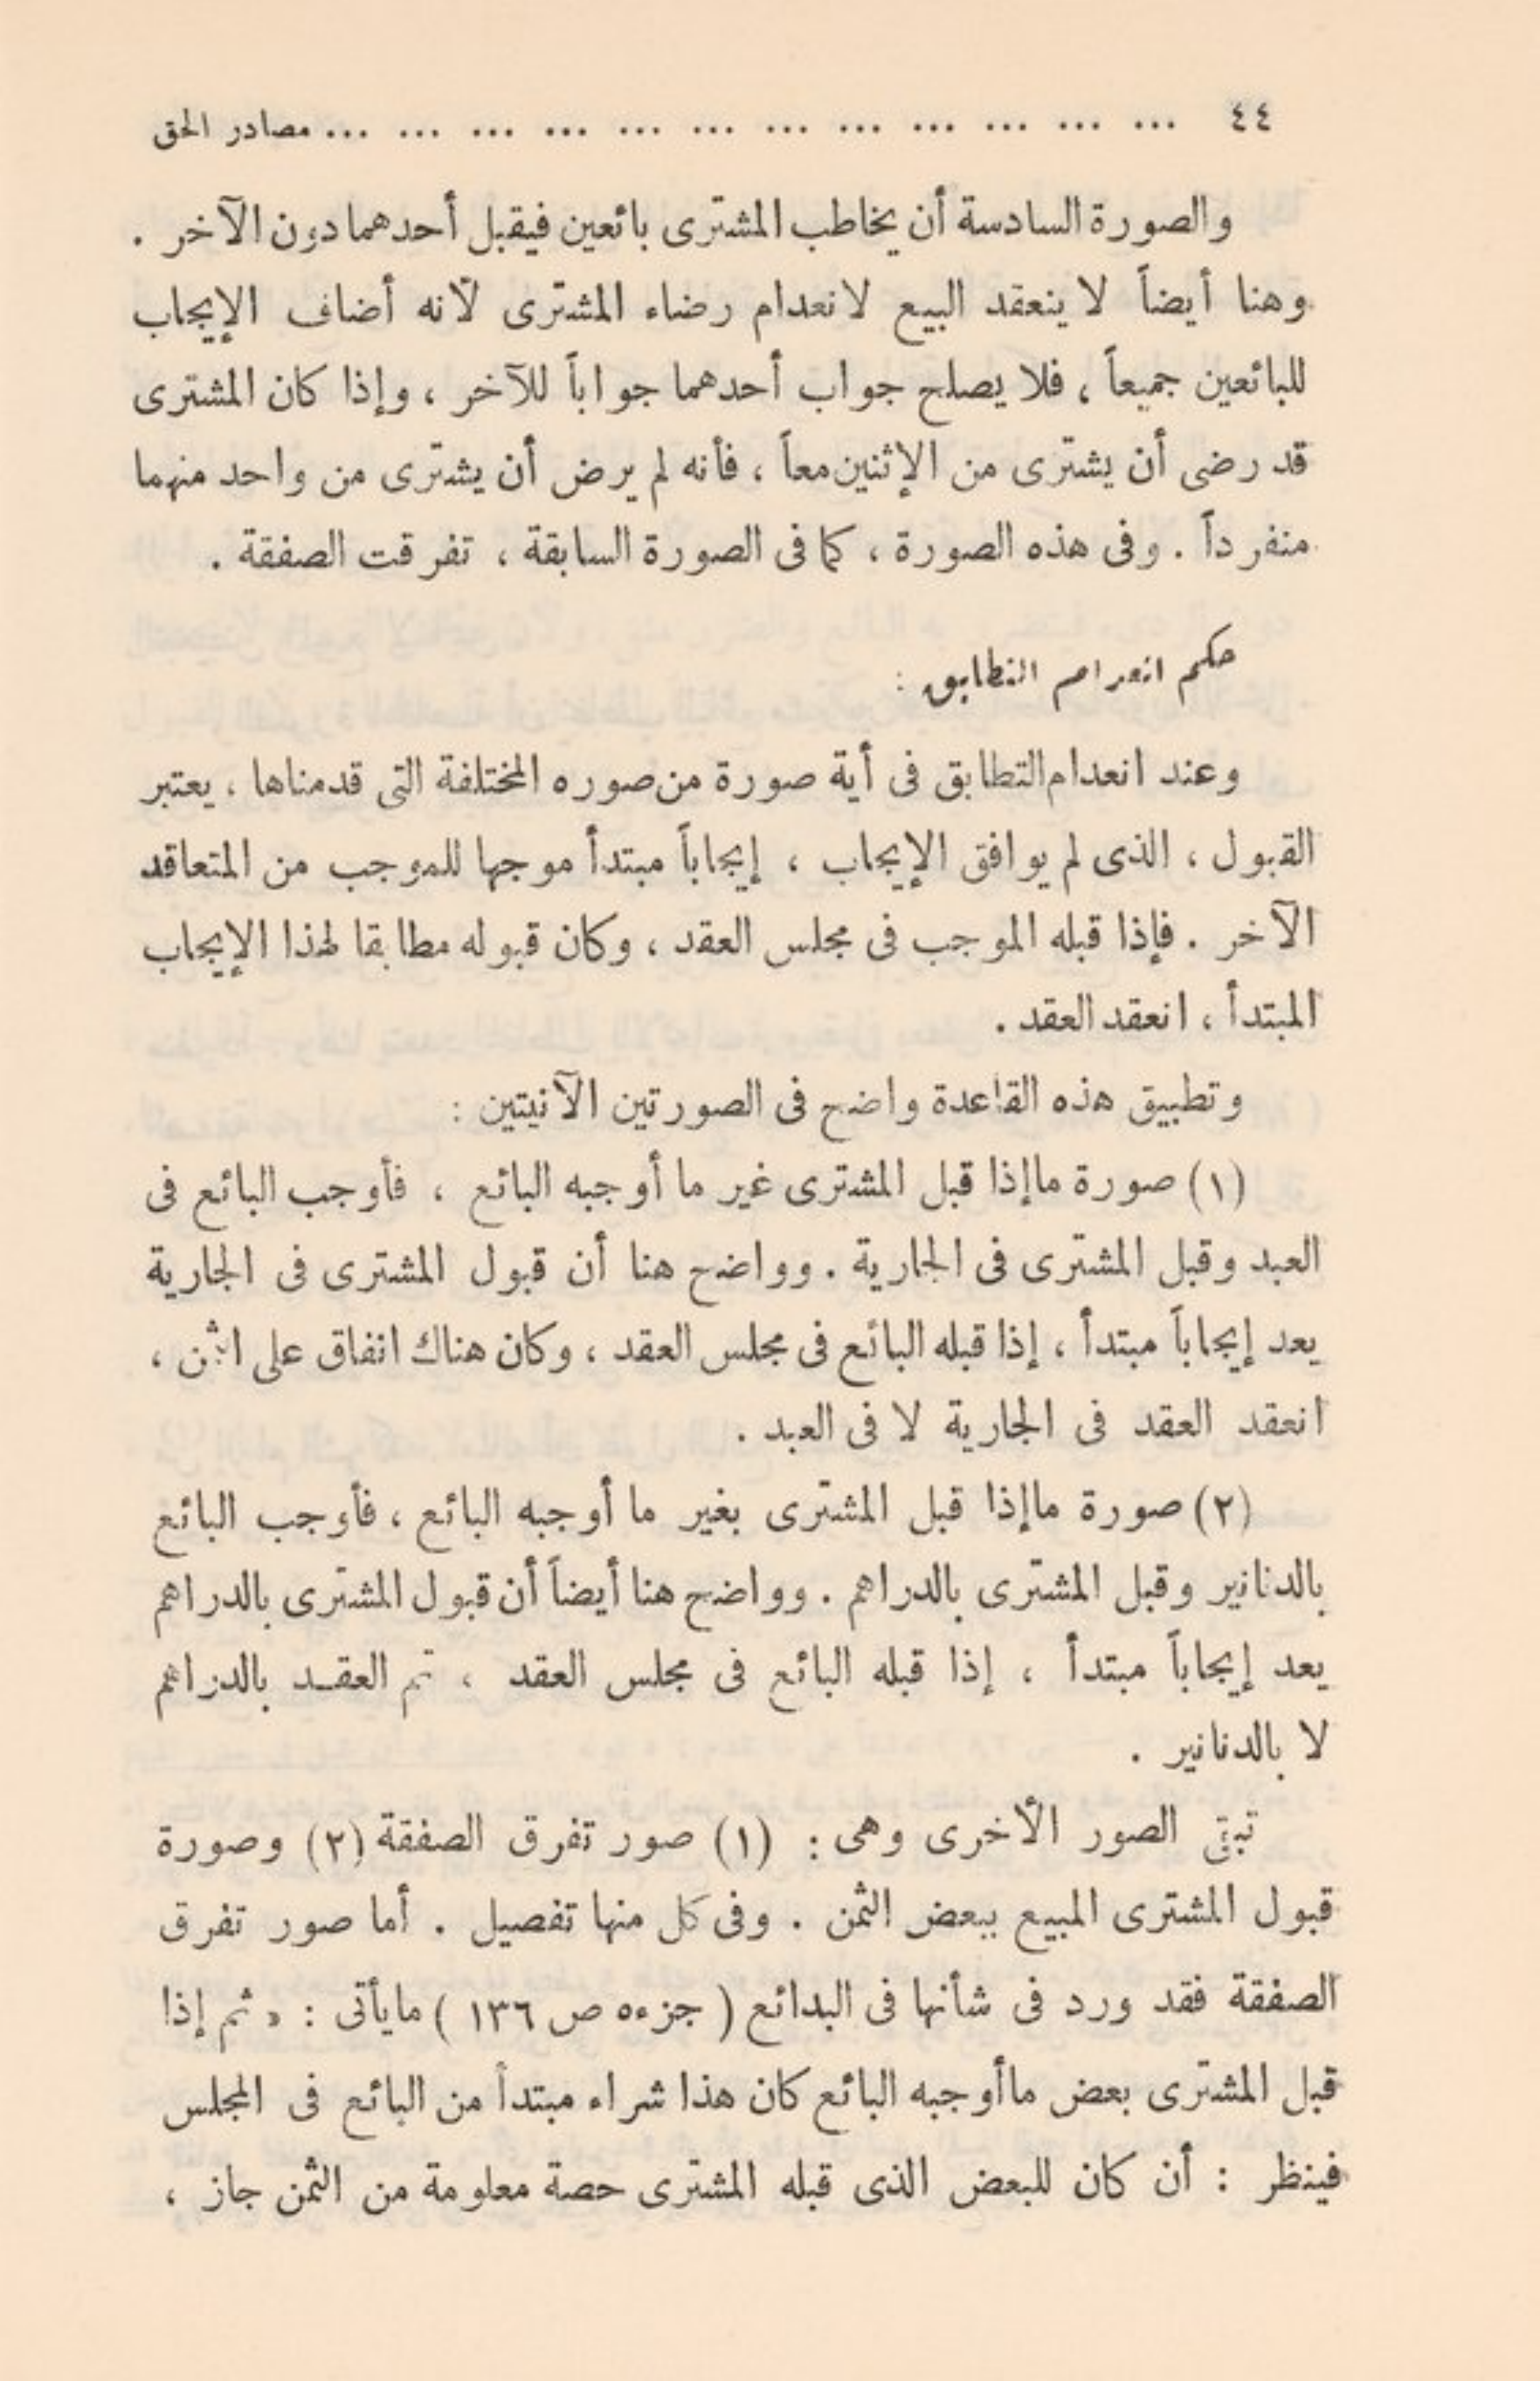 ٤٤ ... ... ... ... ... ... ... ... ... ... ... ... مصادر الحق
والصورة السادسة أن يخاطب المشترى بائعين فيقبل أحدهما دون الآخر .
وهنا أيضاً لا ينعقد البيع لانعدام رضاء المشترى لأنه أضاف الإيجاب
للبائعين جميعاً ، فلا يصلح جواب أحدهما جواباً للآخر ، وإذا كان المشترى
قد رضى أن يشترى من الإثنين معاً ، فأنه لم يرض أن يشترى من واحد منهما
منفرداً . وفى هذه الصورة ، كما فى الصورة السابقة ، تفرقت الصفقة .
حكم انعدام التطابق :
وعند انعدام التطابق فى أية صورة من صوره المختلفة التى قدمناها ، يعتبر
القبول ، الذى لم يوافق الإيجاب ، إيجاباً مبتدأ موجها للموجب من المتعاقد
الآخر . فإذا قبله الموجب فى مجلس العقد ، وكان قبوله مطابقا لهذا الإيجاب
المبتدأ ، انعقد العقد .
وتطبيق هذه القاعدة واضح فى الصورتين الآتيتين :
(١) صورة ماإذا قبل المشترى غير ما أوجبه البائع ، فأوجب البائع فى
العبد وقبل المشترى فى الجارية . وواضح هنا أن قبول المشترى فى الجارية
يعد إيجاباً مبتدأ ، إذا قبله البائع فى مجلس العقد ، وكان هناك اتفاق على الثمن ،
انعقد العقد فى الجارية لا فى العبد .
(٢) صورة ماإذا قبل المشترى بغير ما أوجبه البائع ، فأوجب البائع
بالدنانير وقبل المشترى بالدراهم . وواضح هنا أيضاً أن قبول المشترى بالدراهم
يعد إيجاباً مبتدأ ، إذا قبله البائع فى مجلس العقد ، تم العقد بالدراهم
لا بالدنانير .
تبقى الصور الأخرى وهى : (١) صور تفرق الصفقة (٢) وصورة
قبول المشترى المبيع ببعض الثمن . وفى كل منها تفصيل . أما صور تفرق
الصفقة فقد ورد فى شأنها فى البدائع ( جزء ٥ ص ١٣٦ ) مايأتى : « ثم إذا
قبل المشترى بعض ماأوجبه البائع كان هذا شراء مبتدأ من البائع فى المجلس
فينظر : أن كان للبعض الذى قبله المشترى حصة معلومة من الثمن جاز ،